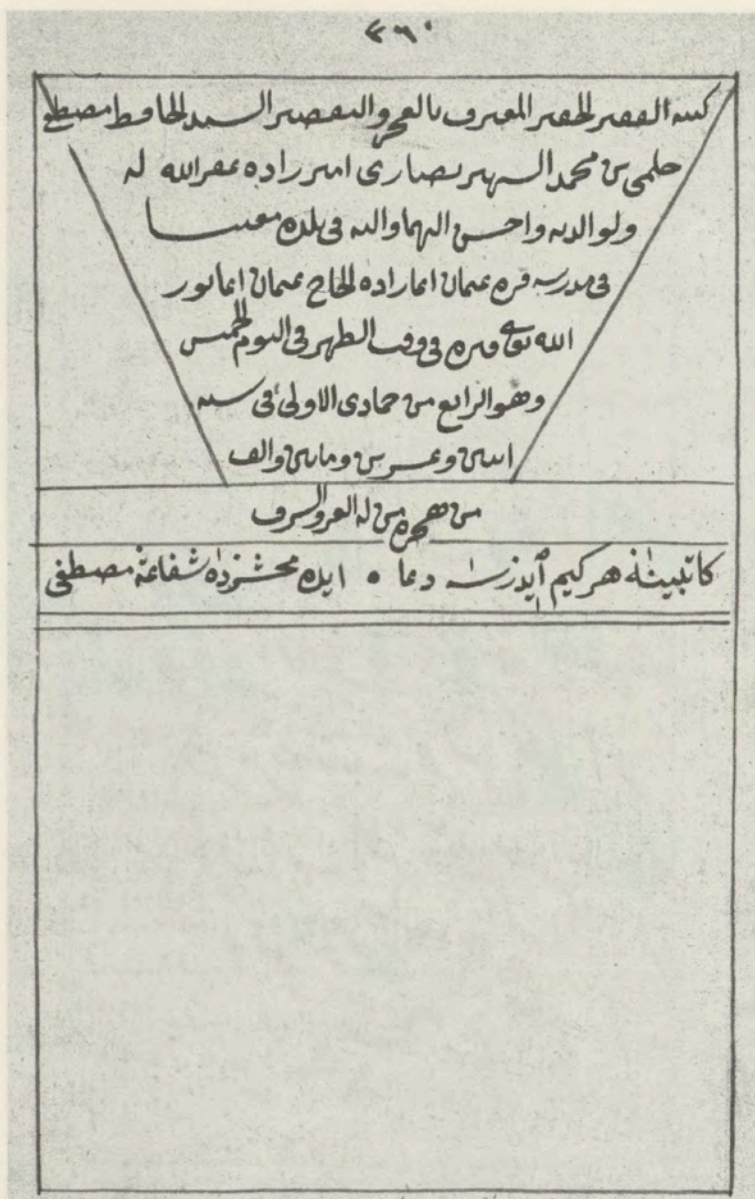 ٢٦٠
كتبه الفقير الحقير المعترف بالعجز والتقصير السيد الحافظ مصطفى
حلمي بن محمد الشهير بصارى امير زاده غفر الله له
ولوالديه واحسن اليهما واليه في بلده مغنيسا
في مدرسه قره عثمان اغازاده الحاج عثمان اغا نور
الله تعالى قبره في وقت الظهر في اليوم الخميس
وهو الرابع من جمادى الاولى في سنه
اثنين وعشرين ومايتين والف
من هجرة من له العز والشرف
كاتبينه هر كيم ايدرسه دعا • ايده محشرده شفاعة مصطفى